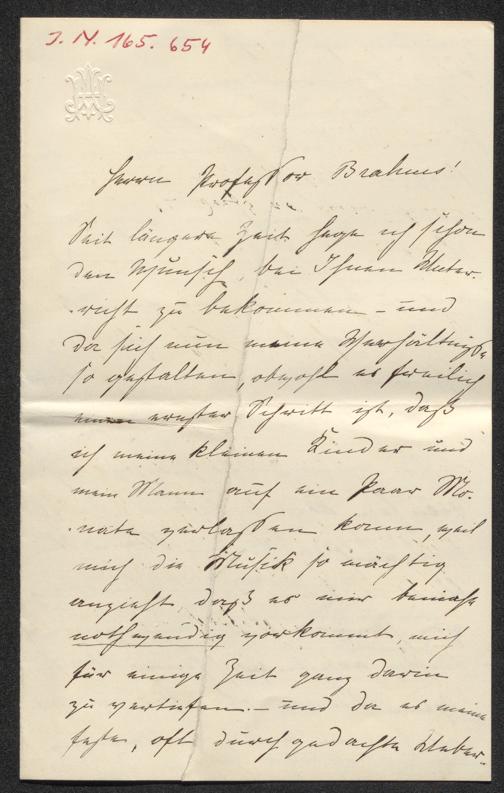 J. N. 165.654
Herrn Professor Brahms!
Seit längere Zeit hege ich schon
den Wunsch, bei Ihnen Unter-
-richt zu bekommen – und
da sich nun meine Verhältniße
so gestalten, obwohl es freilich
ernster Schritt ist, daß
ich meine kleinen Kinder und
mein Mann auf ein Paar Mo-
-nate verlassen kann, weil
mich die Musik so mächtig
anzieht, daß es mir beinahe
nothwendig vorkommt, mich
für einige Zeit ganz darin
zu vertiefen. – und da es meine
feste, oft durchgedachte Ueber-